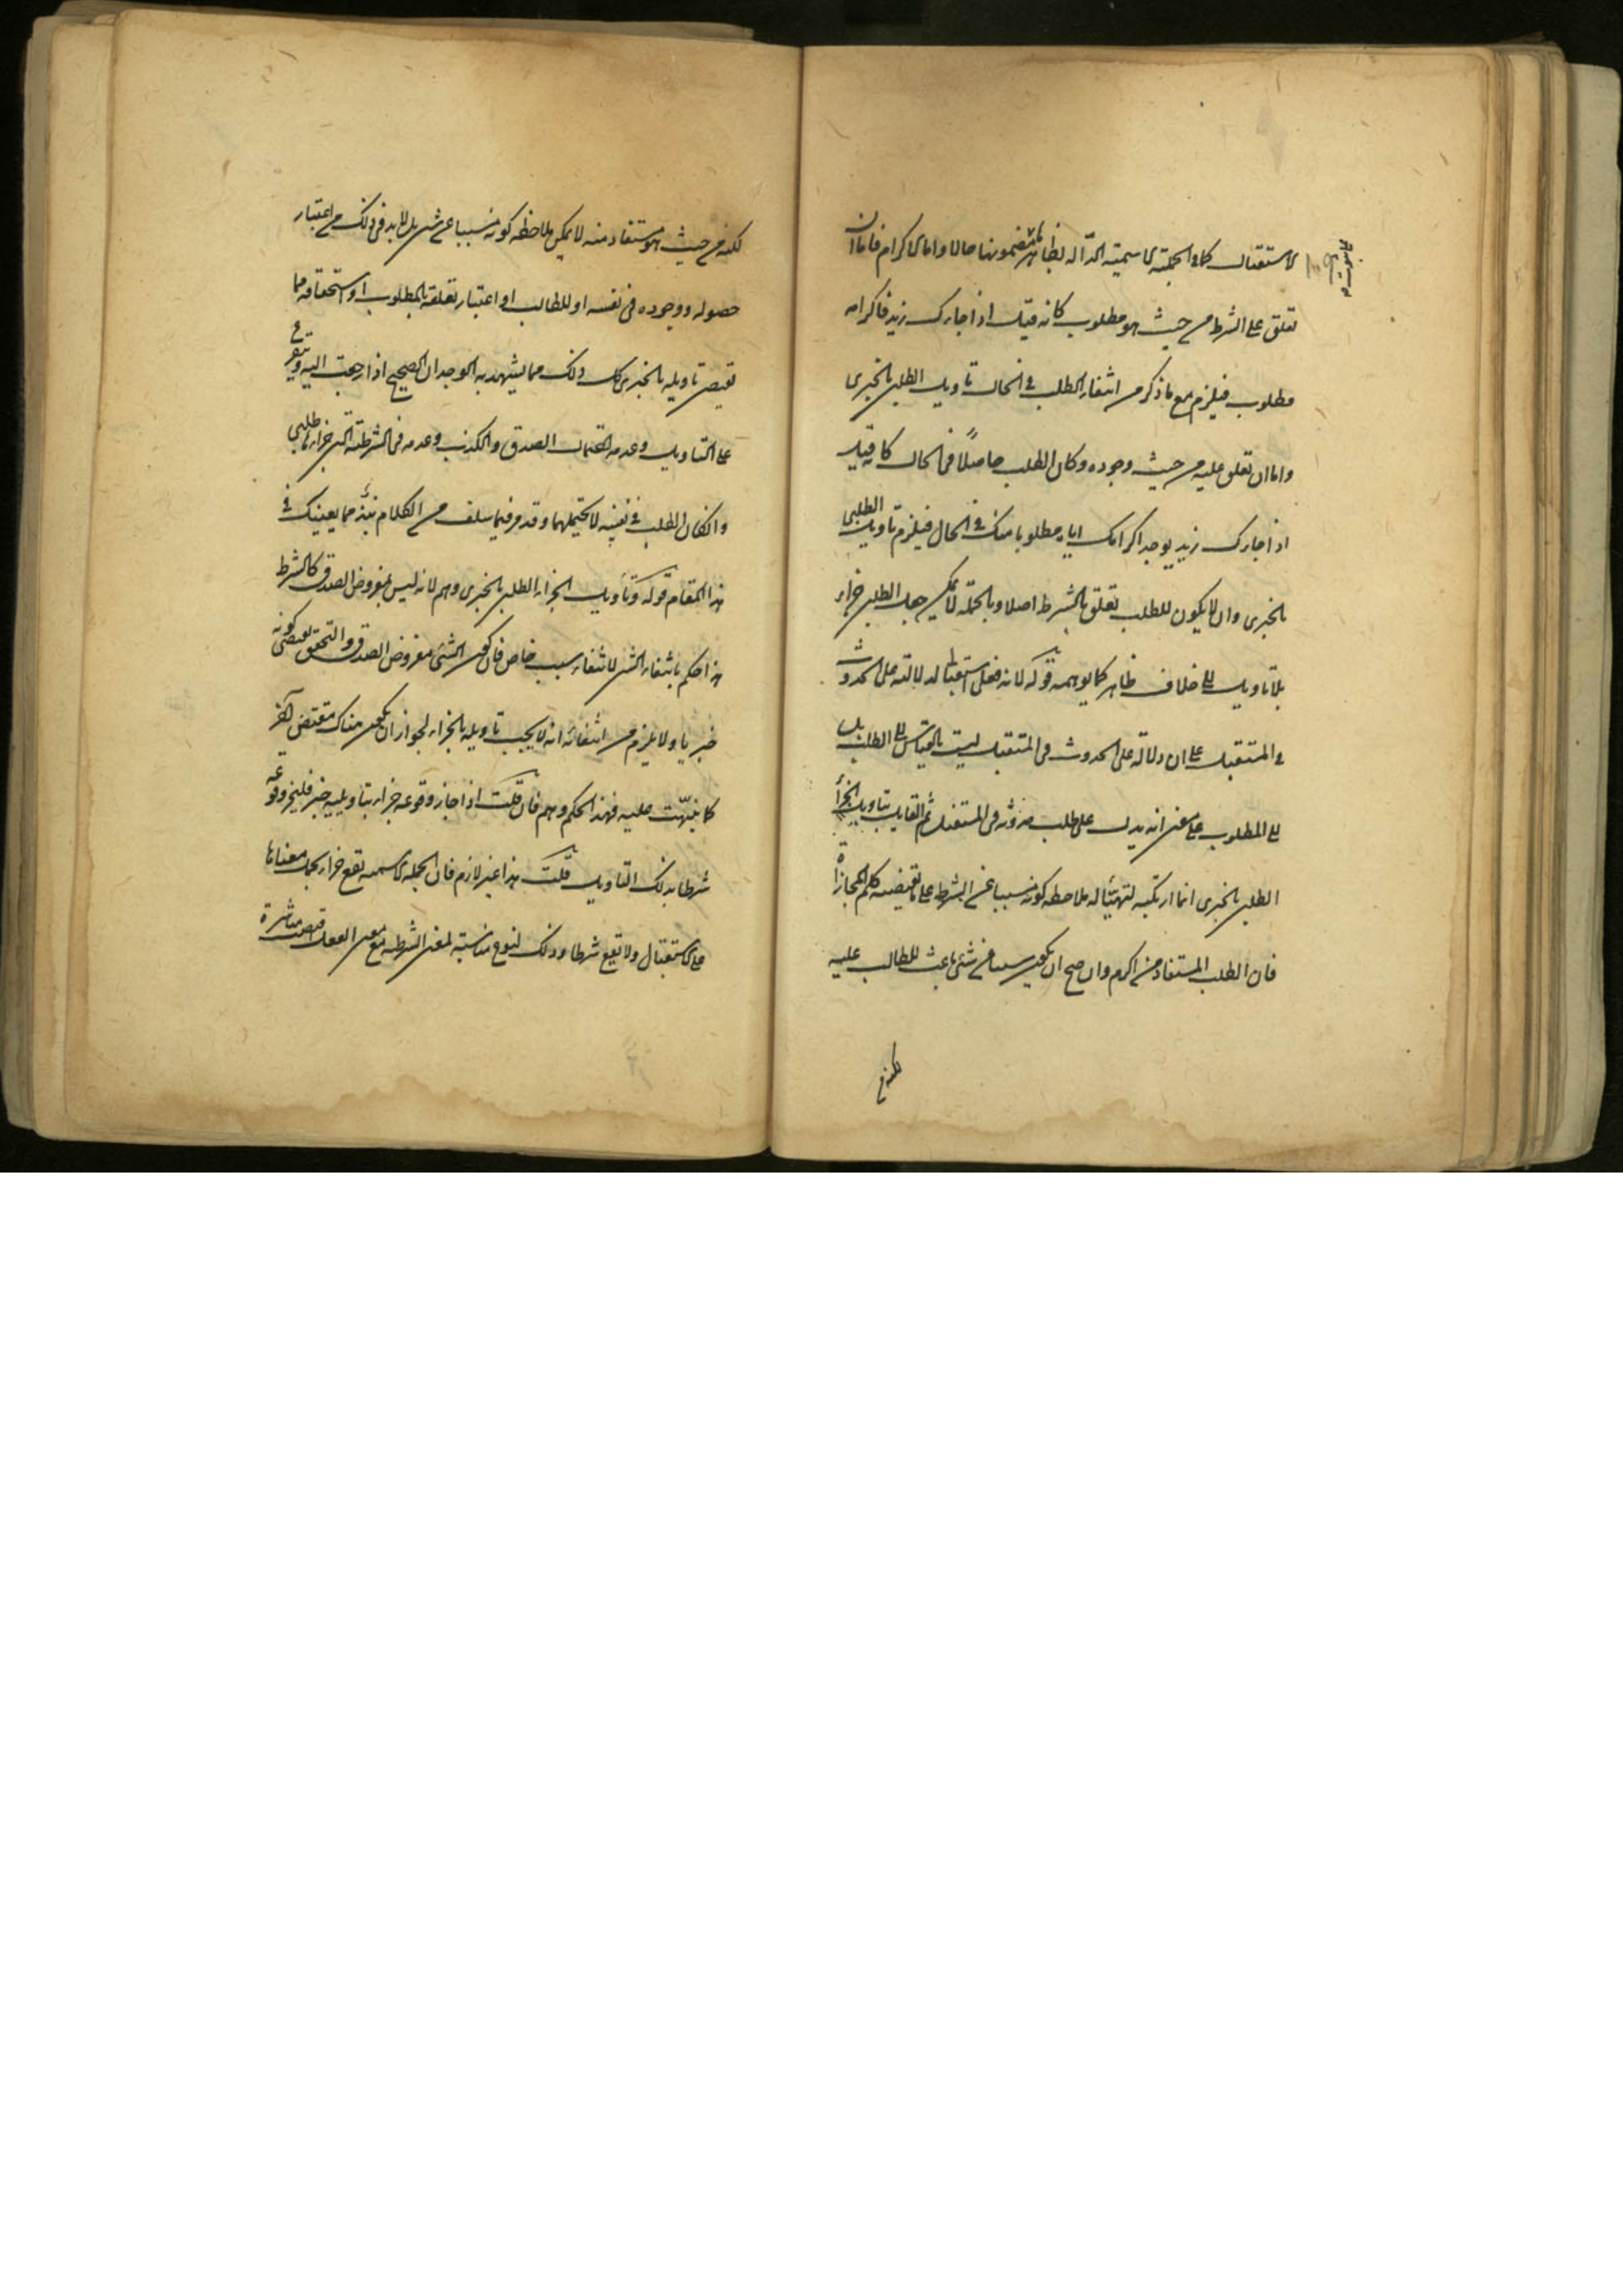 الاستقبال كما في الجملة الاسمية الدالة بظاهرها على ثبوت مضمونها حالا واما الاكرام فاما ان
تعلق على الشرط من حيث هو مطلوب كانه قيل اذا جاءك زيد فاكرامه
مطلوب فيلزم مع ما ذكر من انتفاء الطلب في الحال تاويل الطلبي بالخبري
واما ان تعلق عليه من حيث وجوده وكان الطلب حاصلاً في الحال كانه قيل
اذا جاءك زيد يوجد اكرامك اياه مطلوبا منك في الحال فيلزم تاويل الطلبي
بالخبري وان لا يكون للطلب تعلق بالشرط اصلا وبالجملة لا يمكن جعل الطلبي جزاء
بلا تاويل الى خلاف ظاهر كما يوهمه قوله لانه فعل استقبالي لدلالته على الحدوث
في المستقبل على ان دلالته على الحدوث في المستقبل ليست بالقياس الى الطلب بل
الى المطلوب على معنى انه يدل على طلب حدوثه في المستقبل ثم القايل بتاويل الجزاء
الطلبي بالخبري انما ارتكبه لتهيئا له ملاحظة كونه مسببا عن الشرط على ما تقتضيه كلم المجازاة
فان الطلب المستفاد من اكرم وان صح ان يكون مسببا عن شئ باعث للطالب عليه
لكنه من
لكنه من حيث هو مستفاد منه لا يمكن ملاحظة كونه مسببا عن شئ بل لا بد في ذلك من اعتبار
حصوله ووجوده في نفسه او للطالب او اعتبار تعلقه بالمطلوب او استحقاقه مما
تقتضى تاويله بالخبري كل ذلك مما يشهد به الوجدان الصحيح اذا رجعت اليه ويتفرع
على التاويل وعدمه احتمال الصدق والكذب وعدمه في الشرطية التي جزاؤها طلبي
وان كان الطلب في نفسه لا يحتملهما وقد مر فيما سلف من الكلام نبذ مما يعينك في
هذا المقام قوله وتأويل الجزاء الطلبي بالخبري وهم لانه ليس بمفروض الصدق كالشرط
هذا حكم بانتفاء الشئ لانتفاء سبب خاص فان كون الشئ مفروض الصدق والتحقق يقتضي كونه
خبريا ولا يلزم من انتفائه انه لا يجب تاويله بالجزاء لجواز ان يكون هناك مقتض آخر
كما نبّهت عليه فهذا الحكم وهم فان قلت اذا جاز وقوعه جزاء بتاويله خبر فليجز وقوعه
شرطا بذلك التاويل قلت هذا غير لازم فان الجملة الاسمية تقع جزاء بجعل معناها
على الاستقبال ولا تقع شرطا وذلك لنوع مناسبة لمعنى الشرطية مع معنى الفعل